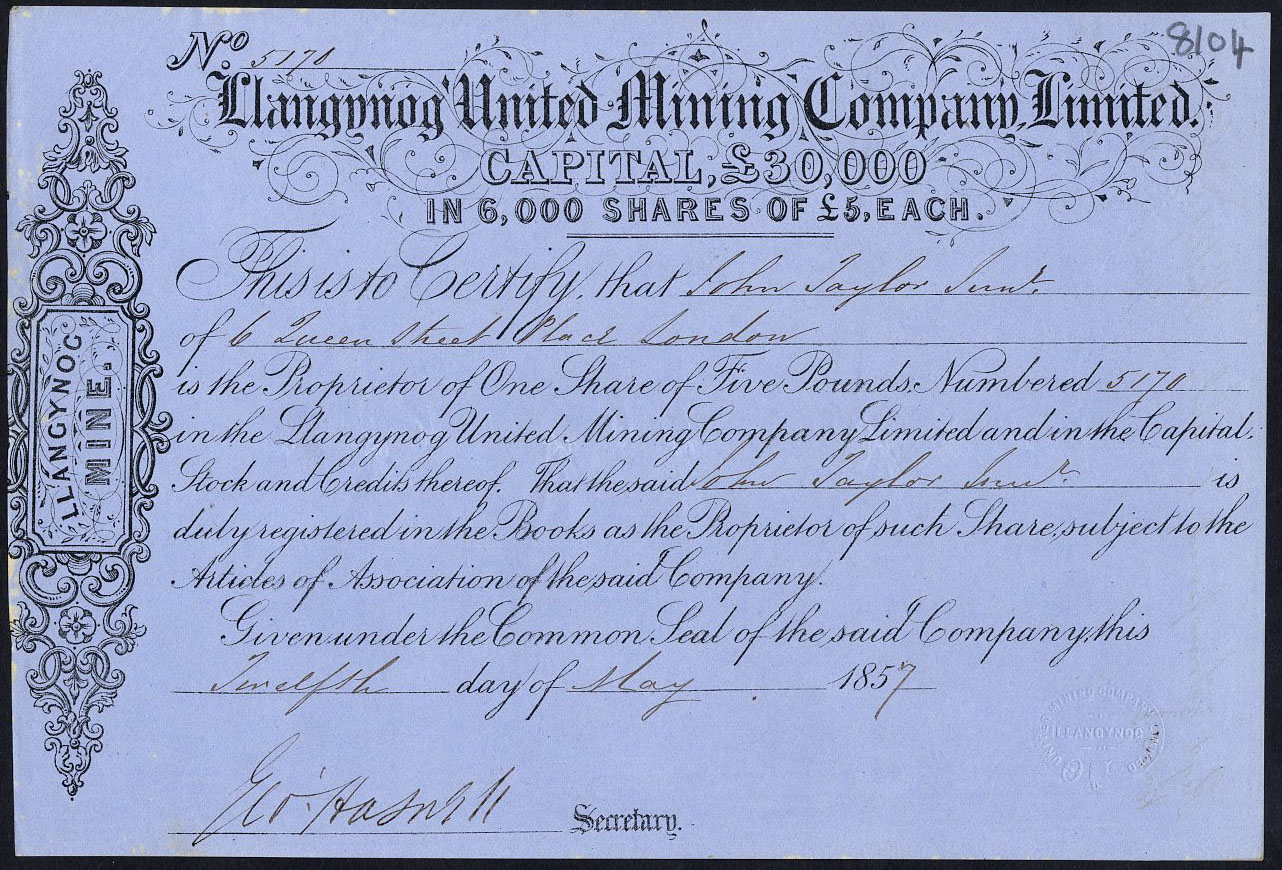 8104
No 5170
Llangynog United Mining Company, Limited.
CAPITAL, £30,000
IN 6,000 SHARES OF £5, EACH.
This is to Certify, that John Taylor Junr.
of 6 Queen Street Place London
is the Proprietor of One Share of Five Pounds. Numbered 5170
in the Llangynog United Mining Company Limited and in the Capital.
Stock and Credits thereof. That the said John Taylor Junr. is
duly registered in the Books as the Proprietor of such Share, subject to the
Articles of Association of the said Company.
Given under the Common Seal of the said Company, this
Twelfth day of May 1857
Secretary.
LLANGYNOG
MINE.
UNITED MINING COMPANY LIMITED
LLANGYNOG